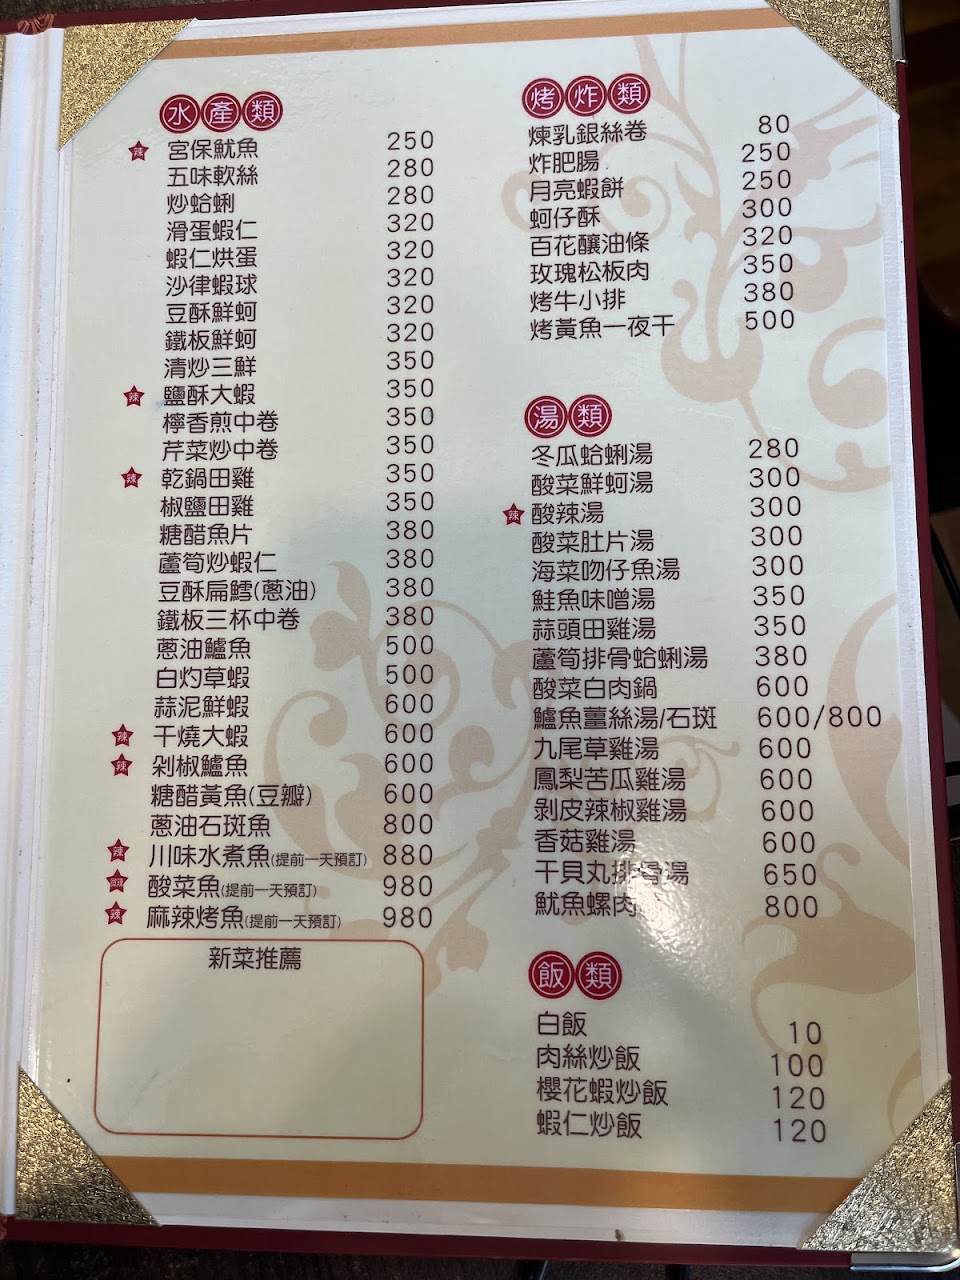 水產類
辣 宮保魷魚 250
五味軟絲 280
炒蛤蜊 280
滑蛋蝦仁 320
蝦仁烘蛋 320
沙律蝦球 320
豆酥鮮蚵 320
鐵板鮮蚵 320
清炒三鮮 350
辣 鹽酥大蝦 350
檸香煎中卷 350
芹菜炒中卷 350
辣 乾鍋田雞 350
椒鹽田雞 350
糖醋魚片 380
蘆筍炒蝦仁 380
豆酥扁鱈(蔥油) 380
鐵板三杯中卷 380
蔥油鱸魚 500
白灼草蝦 500
蒜泥鮮蝦 600
辣 干燒大蝦 600
辣 剁椒鱸魚 600
糖醋黃魚(豆瓣) 600
蔥油石斑魚 800
辣 川味水煮魚(提前一天預訂) 880
酸菜魚(提前一天預訂) 980
辣 麻辣烤魚(提前一天預訂) 980
新菜推薦
烤炸類
煉乳銀絲卷 80
炸肥腸 250
月亮蝦餅 250
蚵仔酥 300
百花釀油條 320
玫瑰松板肉 350
烤牛小排 380
烤黃魚一夜干 500
湯類
冬瓜蛤蜊湯 280
酸菜鮮蚵湯 300
辣 酸辣湯 300
酸菜肚片湯 300
海菜吻仔魚湯 300
鮭魚味噌湯 350
蒜頭田雞湯 350
蘆筍排骨蛤蜊湯 380
酸菜白肉鍋 600
鱸魚薑絲湯/石斑 600/800
九尾草雞湯 600
鳳梨苦瓜雞湯 600
剝皮辣椒雞湯 600
香菇雞湯 600
干貝丸排骨湯 650
魷魚螺肉 800
飯類
白飯 10
肉絲炒飯 100
櫻花蝦炒飯 120
蝦仁炒飯 120